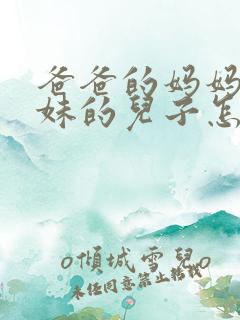 爸爸的妈妈
妹的兒子怎
o傾城雪兒o
未经同意禁止转载